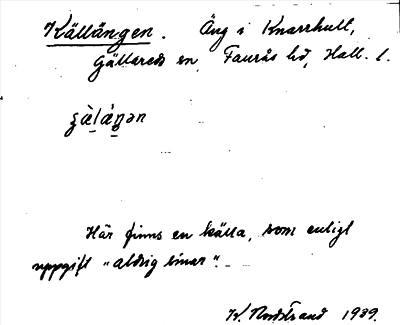 Källängen. Äng i Knarrhult,
Gällareds sn, Faurås hd, Hall. l.
Här finns en källa, som enligt
uppgift "aldrig sinar".
K. Nordstrand 1939.